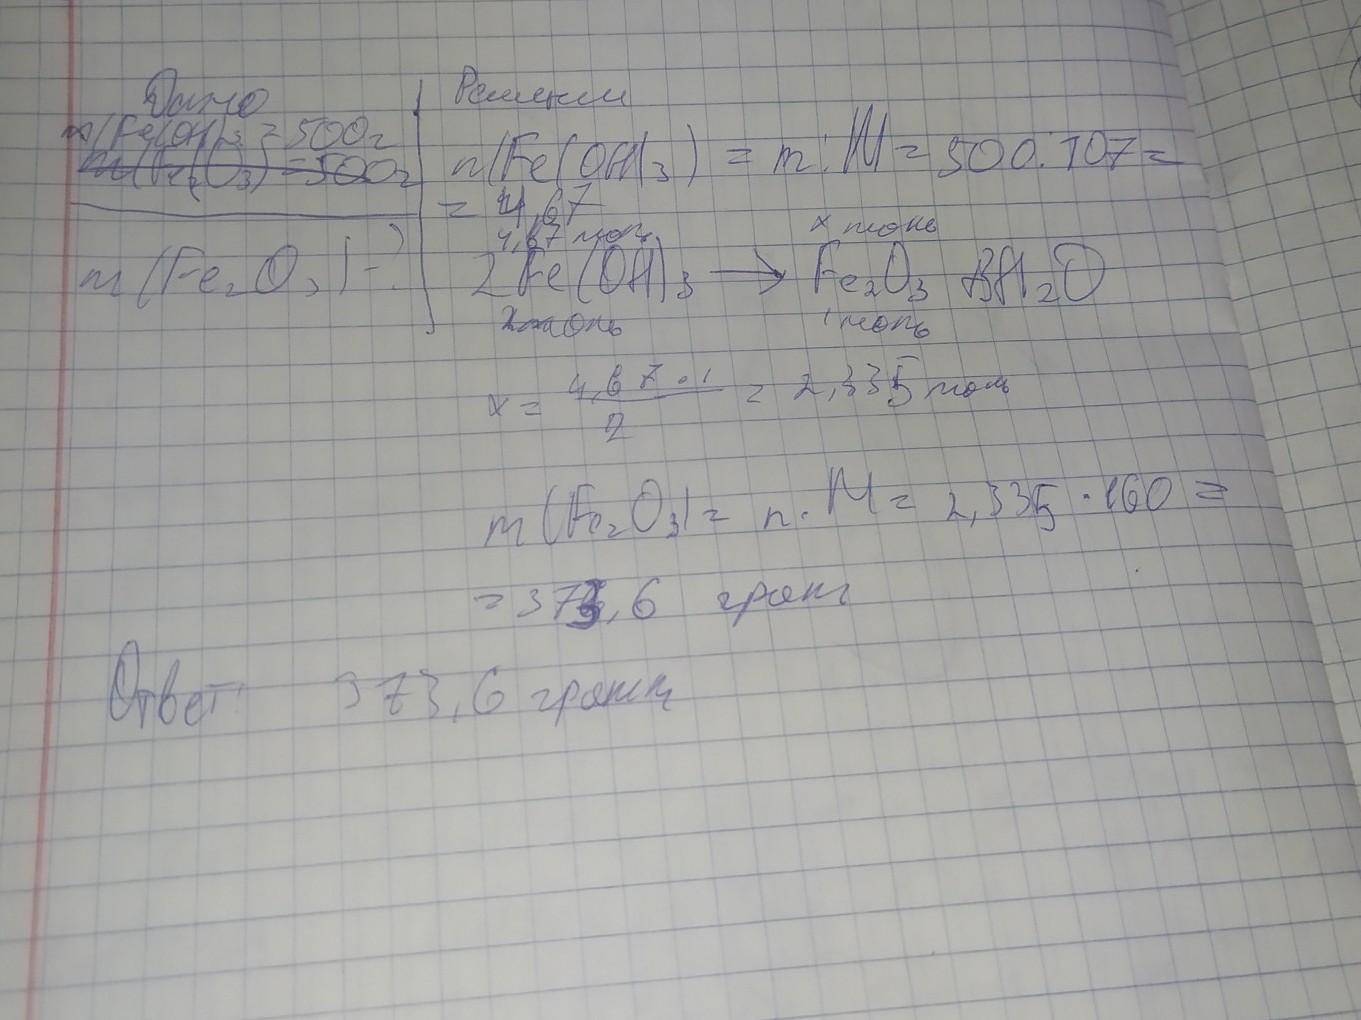 Дано
m(Fe(OH)3 = 500г
m(Fe2O3) = 500г
m(Fe2O3) - ?
Решении
n(Fe(OH)3) = m : M = 500 : 107 =
= 4,67
4,67 моль x моль
2Fe(OH)3 → Fe2O3 3H2O
2моль 1моль
x = 4,67 · 1 / 2 = 2,335 моль
m(Fe2O3) = n · M = 2,335 · 160 =
= 373,6 грамм
Ответ: 373,6 грамм